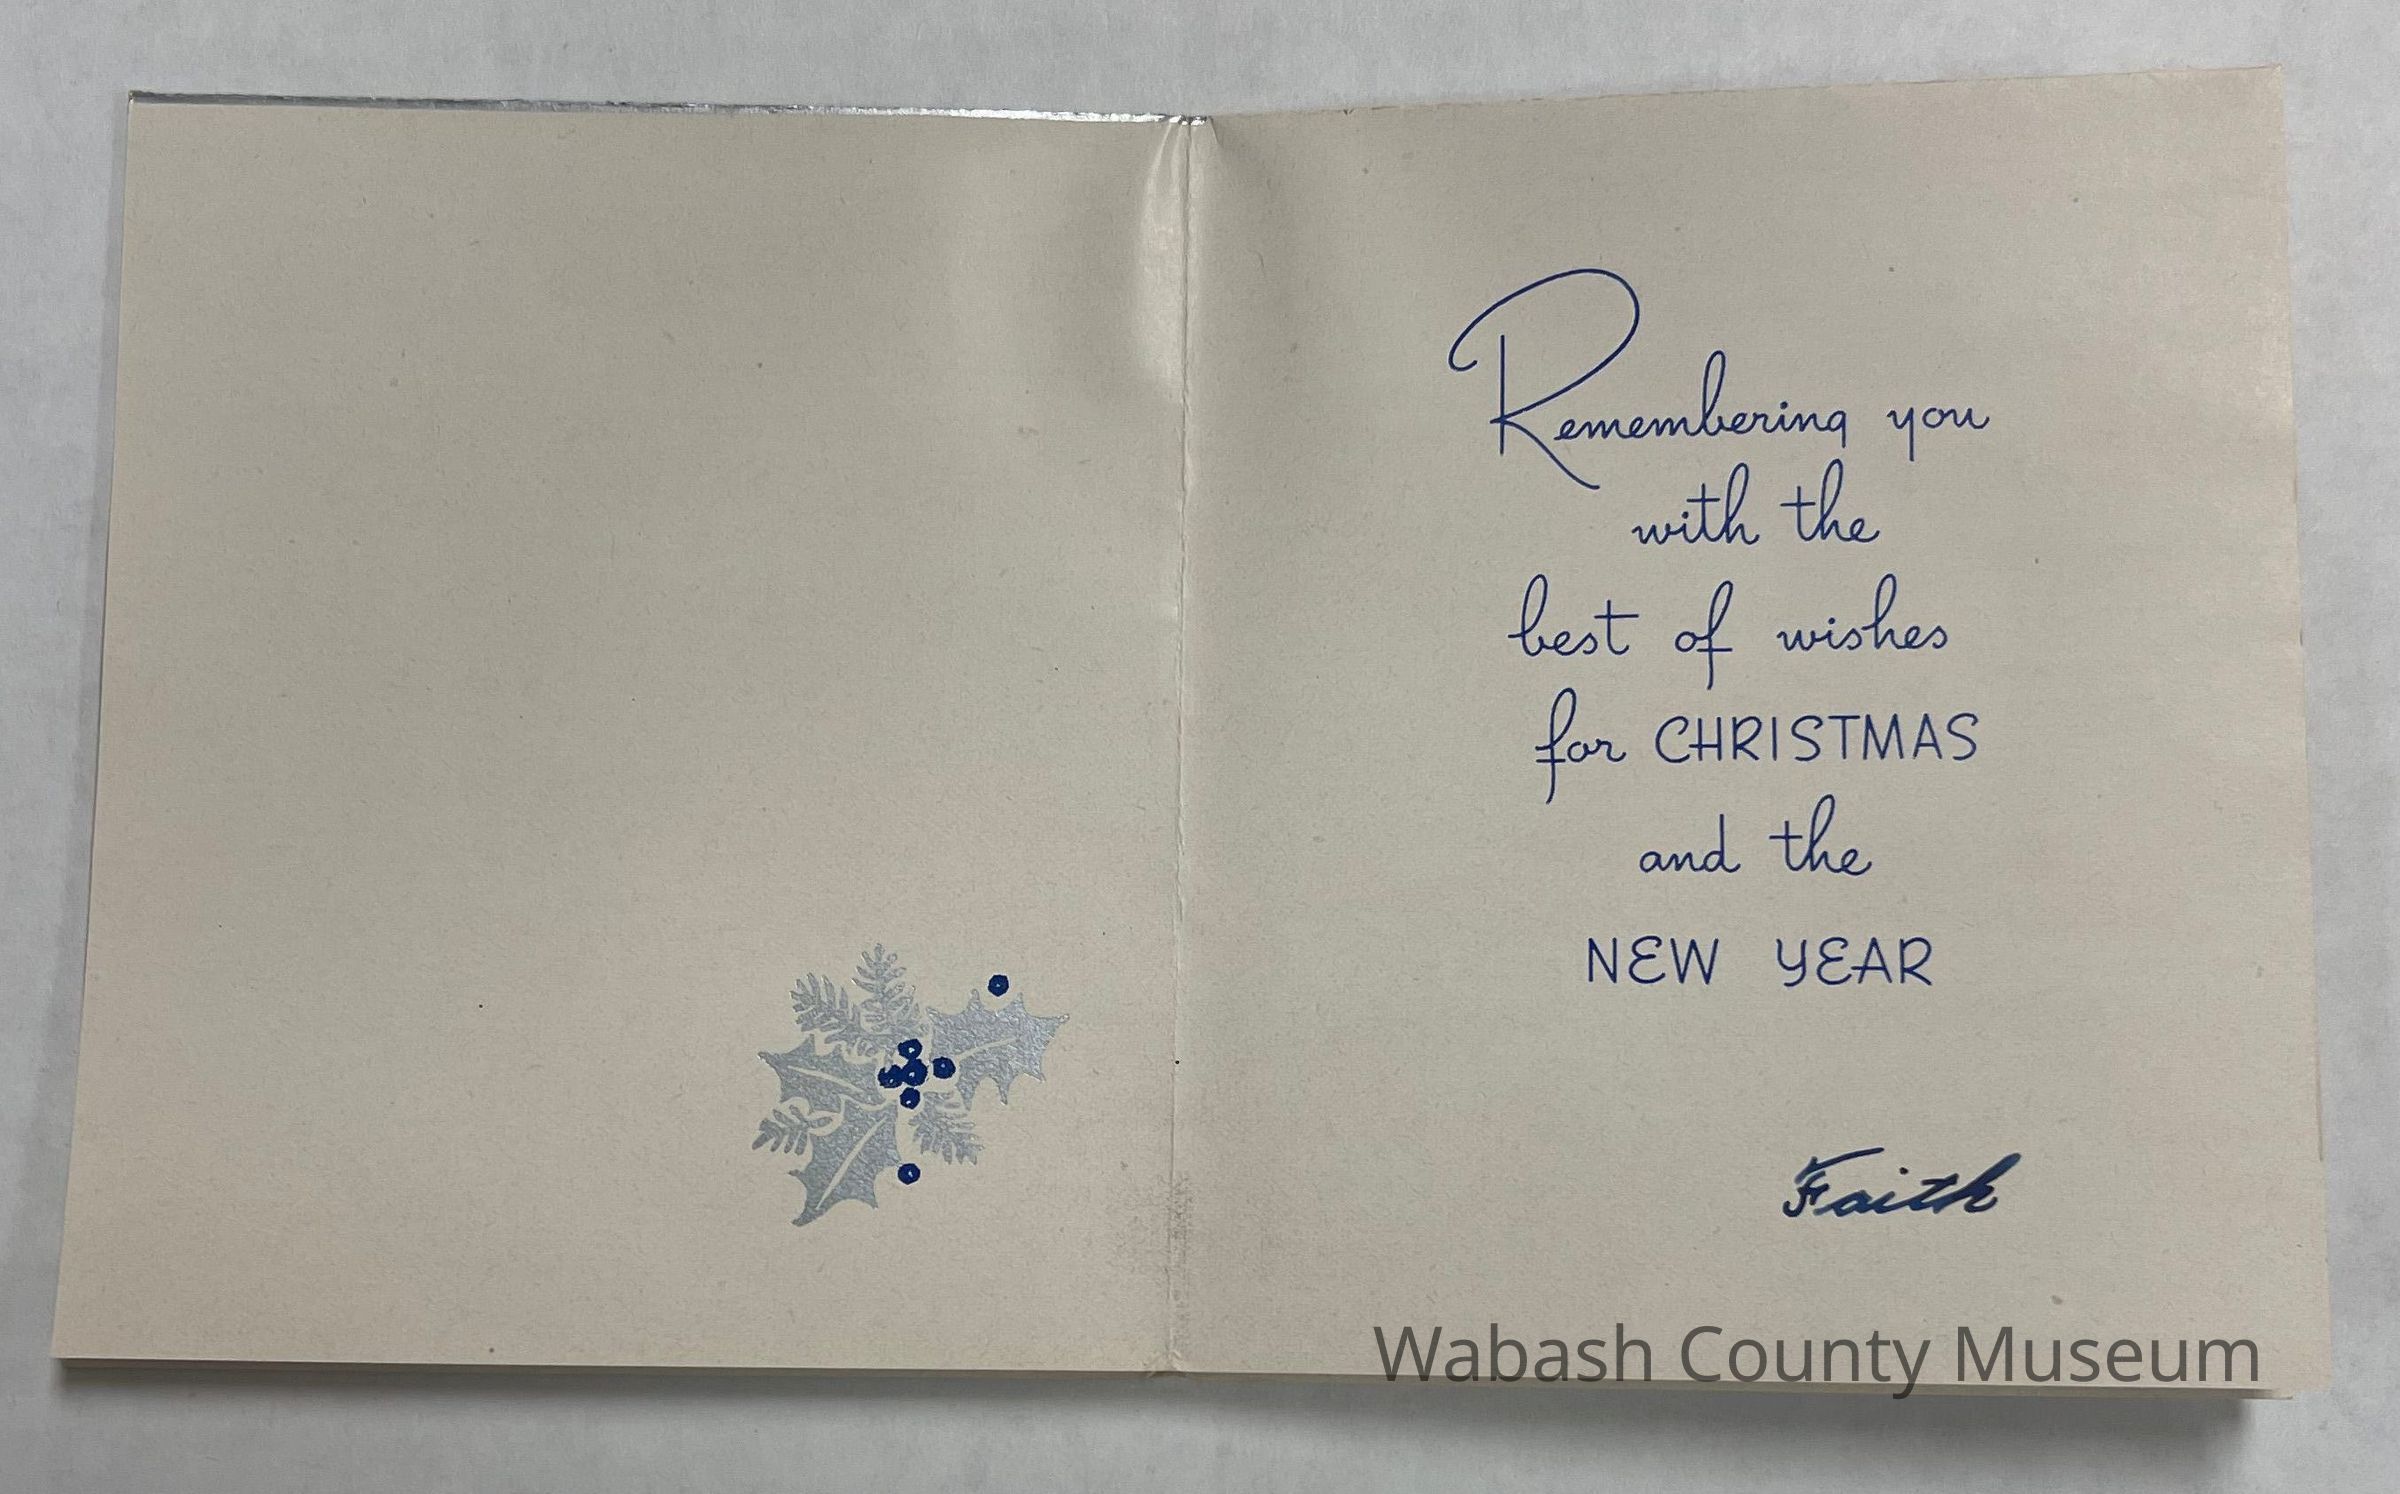 Remembering you
with the
best of wishes
for CHRISTMAS
and the
NEW YEAR
Faith
Wabash County Museum